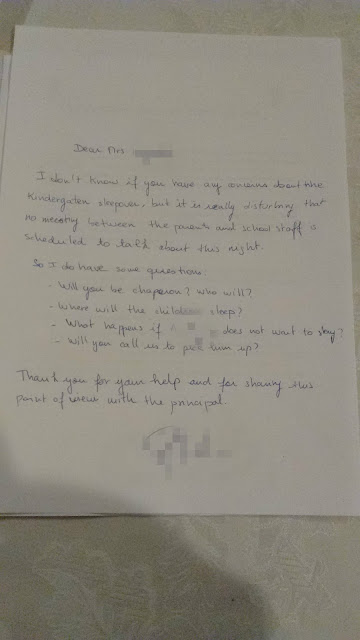 Dear Mrs
I don't know if you have any concerns about the
Kindergarten sleepover, but it is really disturbing that
no meeting between the parents and school staff is
scheduled to talk about this night.
So I do have some questions:
- Will you be chaperon? Who will?
- Where will the children sleep?
- What happens if does not want to stay?
- Will you call us to pick him up?
Thank you for your help and for sharing this
point of view with the principal.